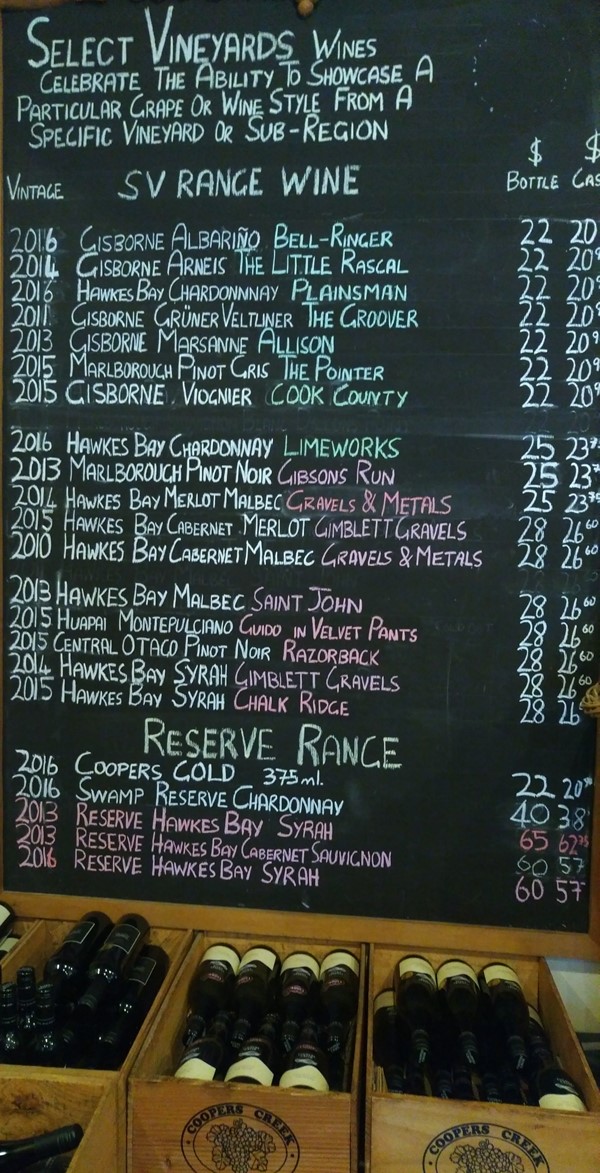 SELECT VINEYARDS WINES
CELEBRATE THE ABILITY TO SHOWCASE A
PARTICULAR GRAPE OR WINE STYLE FROM A
SPECIFIC VINEYARD OR SUB-REGION
$ $
VINTAGE SV RANGE WINE BOTTLE CAS
2016 GISBORNE ALBARIÑO BELL-RINGER 22 20
2014 GISBORNE ARNEIS THE LITTLE RASCAL 22 20
2016 HAWKES BAY CHARDONNNAY PLAINSMAN 22 20
2011 GISBORNE GRÜNER VELTLINER THE GROOVER 22 20
2013 GISBORNE MARSANNE ALLISON 22 20
2015 MARLBOROUGH PINOT GRIS THE POINTER 22 20
2015 GISBORNE VIOGNIER COOK COUNTY 22 20
2016 HAWKES BAY CHARDONNAY LIMEWORKS 25 23
2013 MARLBOROUGH PINOT NOIR GIBSONS RUN 25 23
2014 HAWKES BAY MERLOT MALBEC GRAVELS & METALS 25 23
2015 HAWKES BAY CABERNET MERLOT GIMBLETT GRAVELS 28 26 60
2010 HAWKES BAY CABERNET MALBEC GRAVELS & METALS 28 26 60
2013 HAWKES BAY MALBEC SAINT JOHN 28 26 60
2015 HUAPAI MONTEPULCIANO GUIDO IN VELVET PANTS 28 26 60
2015 CENTRAL OTAGO PINOT NOIR RAZORBACK 28 26 60
2014 HAWKES BAY SYRAH GIMBLETT GRAVELS 28 26 60
2015 HAWKES BAY SYRAH CHALK RIDGE 28 26
RESERVE RANGE
2016 COOPERS GOLD 375ml. 22 20
2016 SWAMP RESERVE CHARDONNAY 40 38
2013 RESERVE HAWKES BAY SYRAH 65 62
2013 RESERVE HAWKES BAY CABERNET SAUVIGNON 60 57
2016 RESERVE HAWKES BAY SYRAH 60 57
COOPERS CREEK
COOPERS CREEK